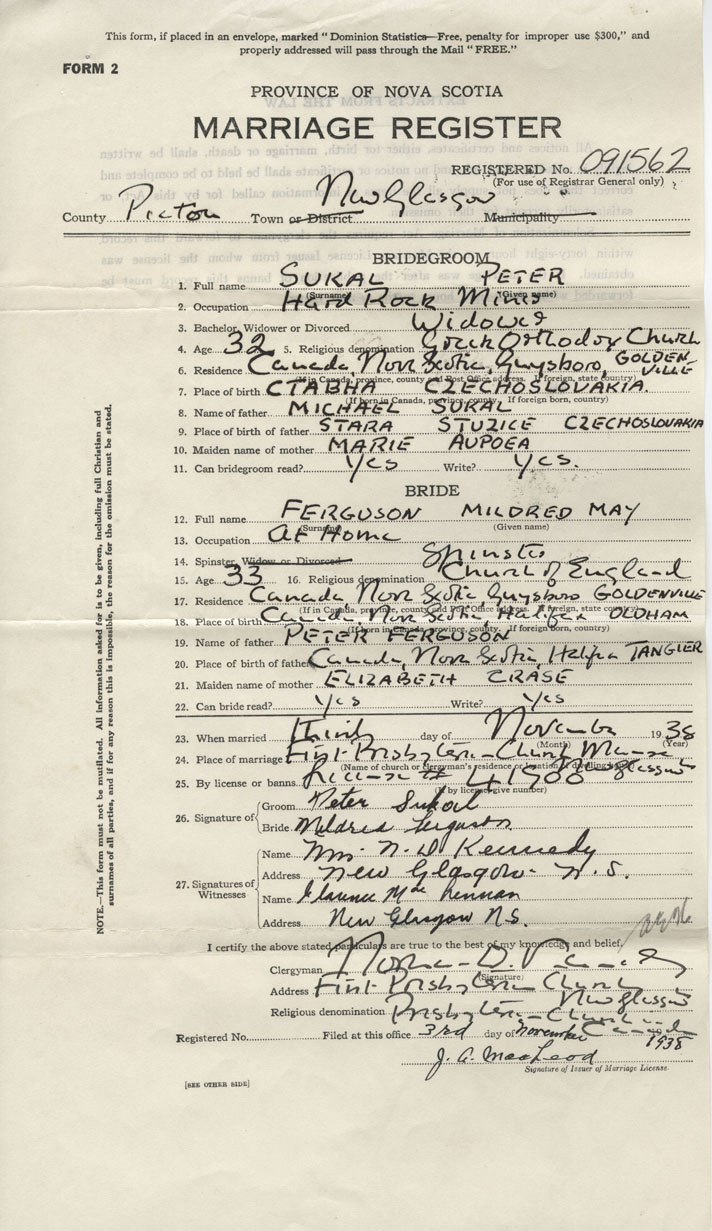 This form, if placed in an envelope, marked "Dominion Statistics—Free, penalty for improper use $300," and
properly addressed will pass through the Mail "FREE."
FORM 2
PROVINCE OF NOVA SCOTIA
MARRIAGE REGISTER
REGISTERED No. 091562
(For use of Registrar General only)
County Pictou Town or District New Glasgow Municipality
BRIDEGROOM
1. Full name SUKAL PETER
(Surname) (Given name)
2. Occupation Hard Rock Miner
3. Bachelor, Widower or Divorced Widower
4. Age 32 5. Religious denomination Greek Orthodox Church
6. Residence Canada, Nova Scotia, Guysboro, GOLDENVILLE
(If in Canada, province, county and Post Office address. If foreign, state country)
7. Place of birth CTABHA CZECHOSLOVAKIA.
(If born in Canada, province, county. If foreign born, country)
8. Name of father MICHAEL SUKAL
9. Place of birth of father STARA STUZICE CZECHOSLOVAKIA
10. Maiden name of mother MARIE AUPOEA
11. Can bridegroom read? Yes Write? Yes.
BRIDE
12. Full name FERGUSON MILDRED MAY
(Surname) (Given name)
13. Occupation At Home
14. Spinster, Widow or Divorced Spinster
15. Age 33 16. Religious denomination Church of England
17. Residence Canada Nova Scotia Guysboro GOLDENVILLE
(If in Canada, province, county and Post Office address. If foreign, state country)
18. Place of birth Canada, Nova Scotia, Halifax OLDHAM
(If born in Canada, province, county. If foreign born, country)
19. Name of father PETER FERGUSON
20. Place of birth of father Canada, Nova Scotia, Halifax TANGIER
21. Maiden name of mother ELIZABETH CRASE
22. Can bride read? Yes Write? Yes
23. When married Third day of November 1938
(Month) (Year)
24. Place of marriage First Presbyterian Church Manse New Glasgow
(Name of church or clergyman's residence or location of dwelling)
25. By license or banns License # 41900
(If by license give number)
26. Signature of
Groom Peter Sukal
Bride Mildred Ferguson
27. Signatures of Witnesses
Name Mrs. N. D. Kennedy
Address New Glasgow N.S.
Name Clarence
Address New Glasgow N.S.
I certify the above stated particulars are true to the best of my knowledge and belief,
Clergyman Norman D. Kennedy
(Signature)
Address First Presbyterian Church New Glasgow
Religious denomination Presbyterian Church in Canada
Registered No. Filed at this office 3rd day of November 1938
J. A. MacLeod
Signature of Issuer of Marriage License.
[SEE OTHER SIDE]
NOTE.—This form must not be mutilated. All information asked for is to be given, including full Christian and
surnames of all parties, and if for any reason this is impossible, the reason for the omission must be stated.